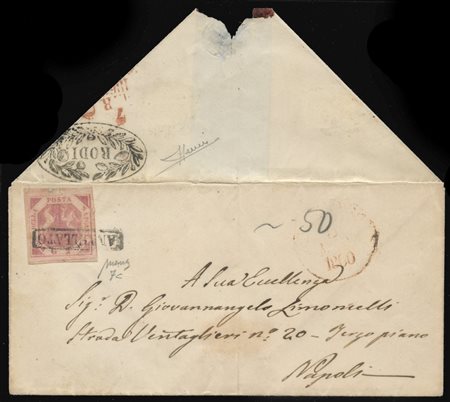 RODI
POSTA
ANNULLATO
~ 50
A Sua Eccellenza
Sig.r D. Giovannangelo Limoncelli
Strada Ventaglieri n.o 20 - Terzo piano
Napoli